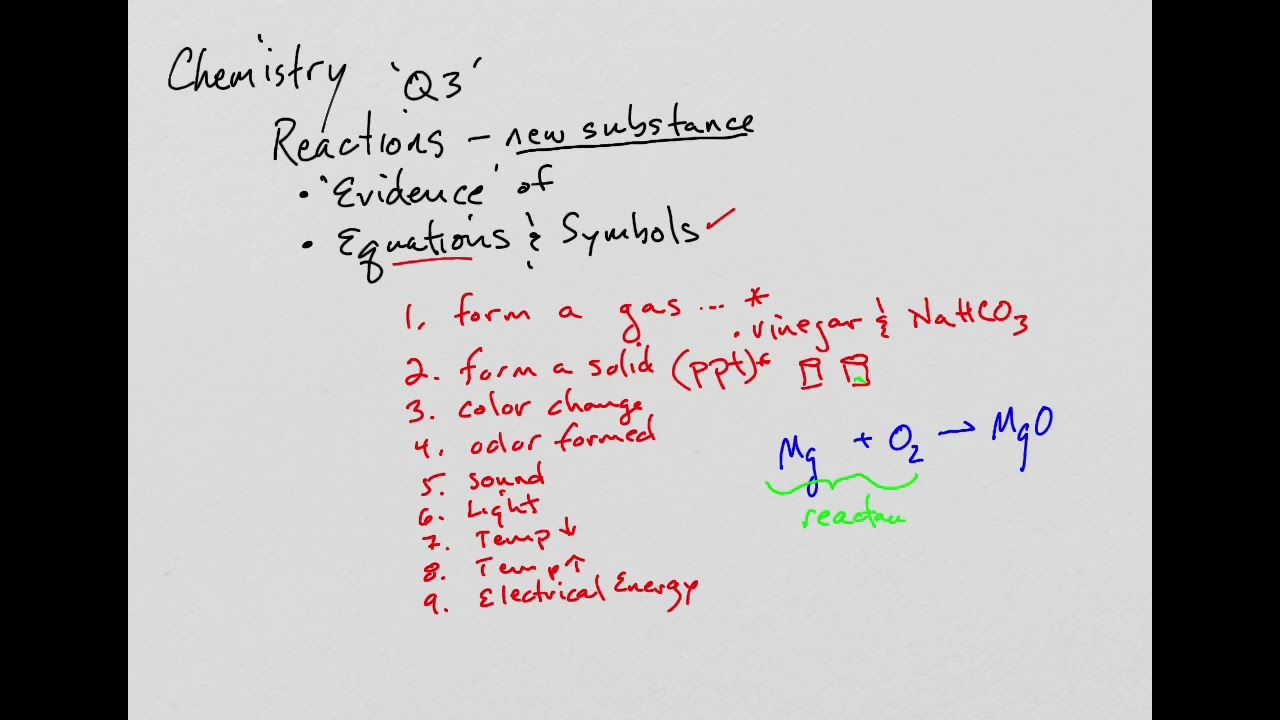 Chemistry 'Q3'
Reactions – new substance
• 'Evidence' of
• Equations & Symbols ✓
1. form a gas ... *
. vinegar & NaHCO3
2. form a solid (ppt)*
3. color change
4. odor formed
5. sound
6. Light
7. Temp ↓
8. Temp ↑
9. Electrical Energy
Mg + O2 → MgO
reactan